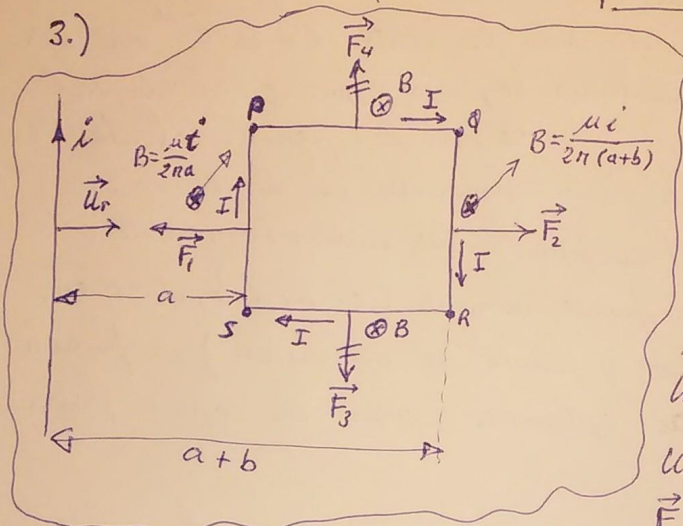 3.)
F₄
B
I
P
Q
i
B = μi / 2πa
B = μi / 2π(a+b)
uᵣ
I
F₁
F₂
I
a
S
I
B
R
F₃
a+b
u
F